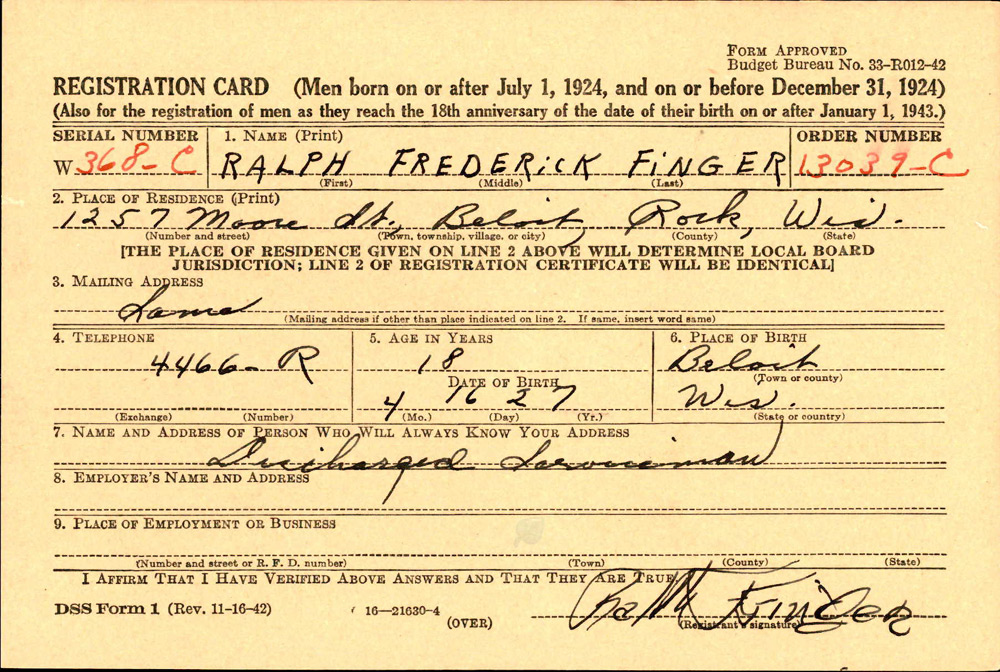 FORM APPROVED
Budget Bureau No. 33-R012-42
REGISTRATION CARD (Men born on or after July 1, 1924, and on or before December 31, 1924)
(Also for the registration of men as they reach the 18th anniversary of the date of their birth on or after January 1, 1943.)
SERIAL NUMBER 1. NAME (Print) ORDER NUMBER
W 368-C RALPH FREDERICK FINGER 13039-C
(First) (Middle) (Last)
2. PLACE OF RESIDENCE (Print)
1257 Moore St., Beloit, Rock, Wis.
(Number and street) (Town, township, village, or city) (County) (State)
[THE PLACE OF RESIDENCE GIVEN ON LINE 2 ABOVE WILL DETERMINE LOCAL BOARD
JURISDICTION; LINE 2 OF REGISTRATION CERTIFICATE WILL BE IDENTICAL]
3. MAILING ADDRESS
Same
(Mailing address if other than place indicated on line 2. If same, insert word same)
4. TELEPHONE 5. AGE IN YEARS 6. PLACE OF BIRTH
4466-R 18 Beloit
(Town or county)
DATE OF BIRTH
4 16 27 Wis.
(Exchange) (Number) (Mo.) (Day) (Yr.) (State or country)
7. NAME AND ADDRESS OF PERSON WHO WILL ALWAYS KNOW YOUR ADDRESS
Discharged Serviceman
8. EMPLOYER'S NAME AND ADDRESS
9. PLACE OF EMPLOYMENT OR BUSINESS
(Number and street or R. F. D. number) (Town) (County) (State)
I AFFIRM THAT I HAVE VERIFIED ABOVE ANSWERS AND THAT THEY ARE TRUE.
DSS Form 1 (Rev. 11-16-42) 16—21630-4 Ralph Finger
(OVER) (Registrant's signature)